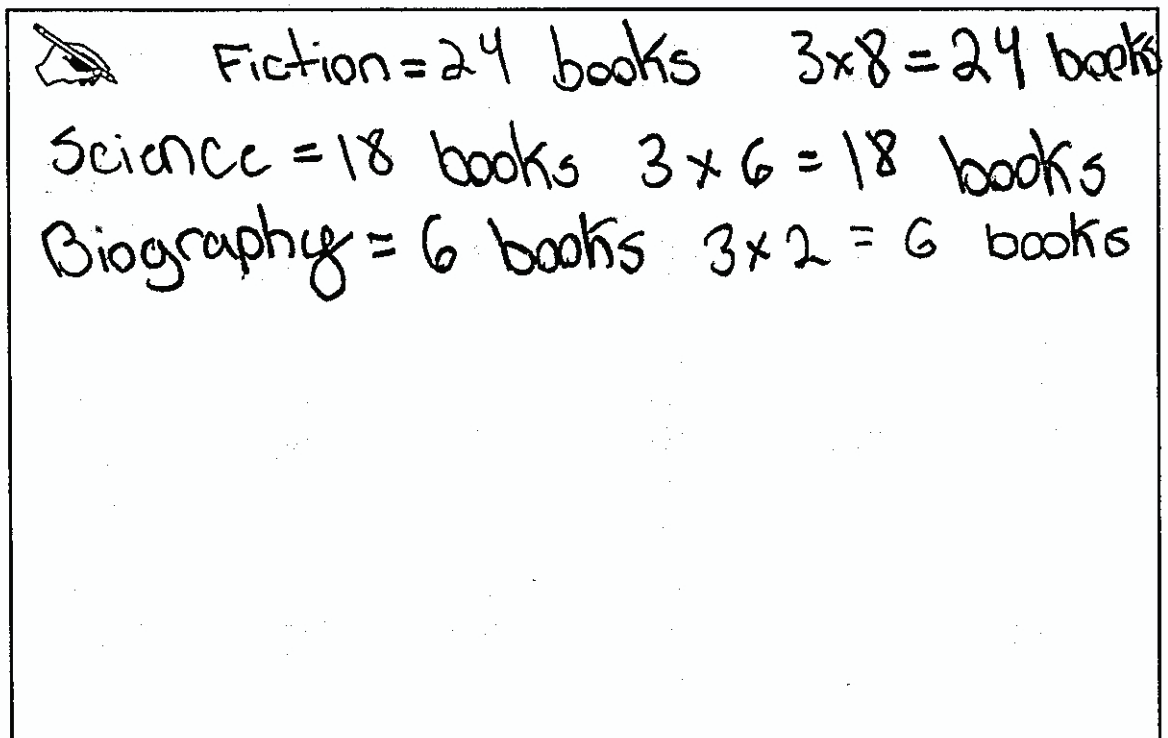 Fiction = 24 books 3x8 = 24 books
Science = 18 books 3 x 6 = 18 books
Biography = 6 books 3x2 = 6 books